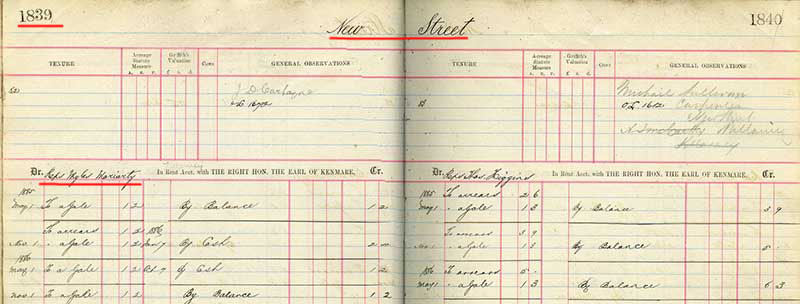 1839
New Street
1840
TENURE
Acreage Statute Measure
A. R. P.
Griffith's Valuation
£ s. d.
Cows
GENERAL OBSERVATIONS
TENURE
Acreage Statute Measure
A. R. P.
Griffith's Valuation
£ s. d.
Cows
GENERAL OBSERVATIONS
J D
Michael Sullivan
Carpenter
New Street
Dr. Reps Myles Moriarty In Rent Acct. with THE RIGHT HON. THE EARL OF KENMARE. Cr.
1885
May 1 To a Gale 1 2 By Balance 1 2
To arrears 1 2 1886
Nov. 1 " a Gale 1 2 Jany 7 By Cash
1886
May 1 To a Gale 1 2 By Cash 1 2
Nov 1 To a Gale 1 2 By Balance 1 2
Dr. Reps Thos. Higgins In Rent Acct. with THE RIGHT HON. THE EARL OF KENMARE. Cr.
1885 To arrears 2 6
May 1 " a Gale 1 3 By Balance 3 9
To arrears 3 9
Nov. 1 " a Gale 1 3 By Balance 5 -
1886 To arrears 5 -
May 1 " a Gale 1 3 By Balance 6 3